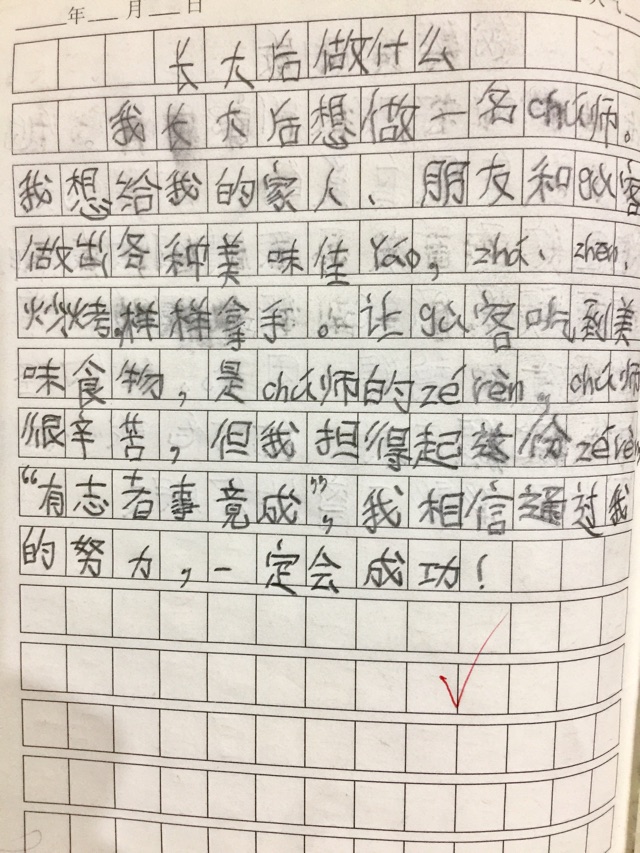 年 月 日
长大后做什么
我长大后想做一名chú师。
我想给我的家人、朋友和gù客
做出各种美味佳yáo，zhá、zhēn、
炒烤，样样拿手。让gù客吃到美
味食物，是chú师的zé rèn，chú师
很辛苦，但我担得起这份zé rèn
“有志者事竟成”，我相信通过我
的努力，一定会成功！